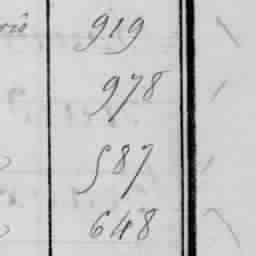 919
978
587
648